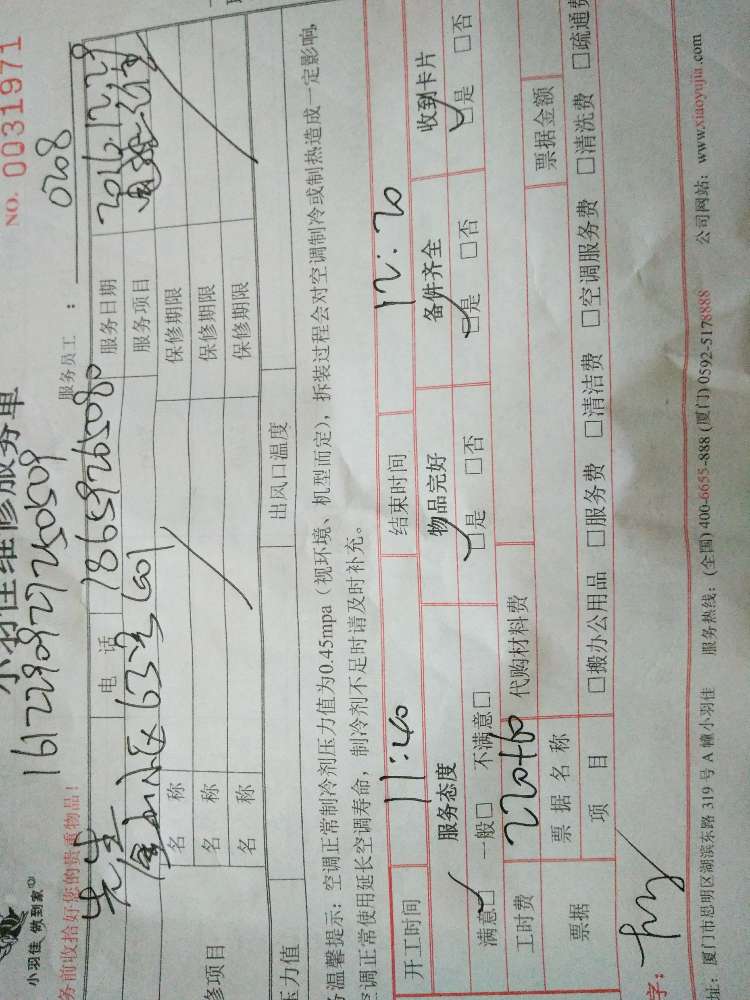 小羽佳 做到家
小羽佳维修服务单
NO. 0031971
1612290927250509
务前收拾好您的贵重物品!
服务员工: 0208
先生
电 话 18659265080
服务日期 2016.12.29
金山小区63号601
服务项目
修项目
名 称
保修期限
名 称
保修期限
名 称
保修期限
压力值
出风口温度
温馨提示:空调正常制冷剂压力值为0.45mpa(视环境、机型而定),拆装过程会对空调制冷或制热造成一定影响,
空调正常使用延长空调寿命,制冷剂不足时请及时补充。
开工时间 11:40 结束时间 12:20
服务态度 物品完好 备件齐全 收到卡片
满意□ 一般□ 不满意□ □是 □否 □是 □否 □是 □否
工时费 220+60 代购材料费
票据 票据名称 票据金额
项 目 □搬办公用品 □服务费 □清洁费 □空调服务费 □清洗费 □疏通费
字:
址:厦门市思明区湖滨东路319号A幢小羽佳 服务热线:(全国)400-6655-888 (厦门)0592-5178888 公司网站:www.xiaoyujia.com